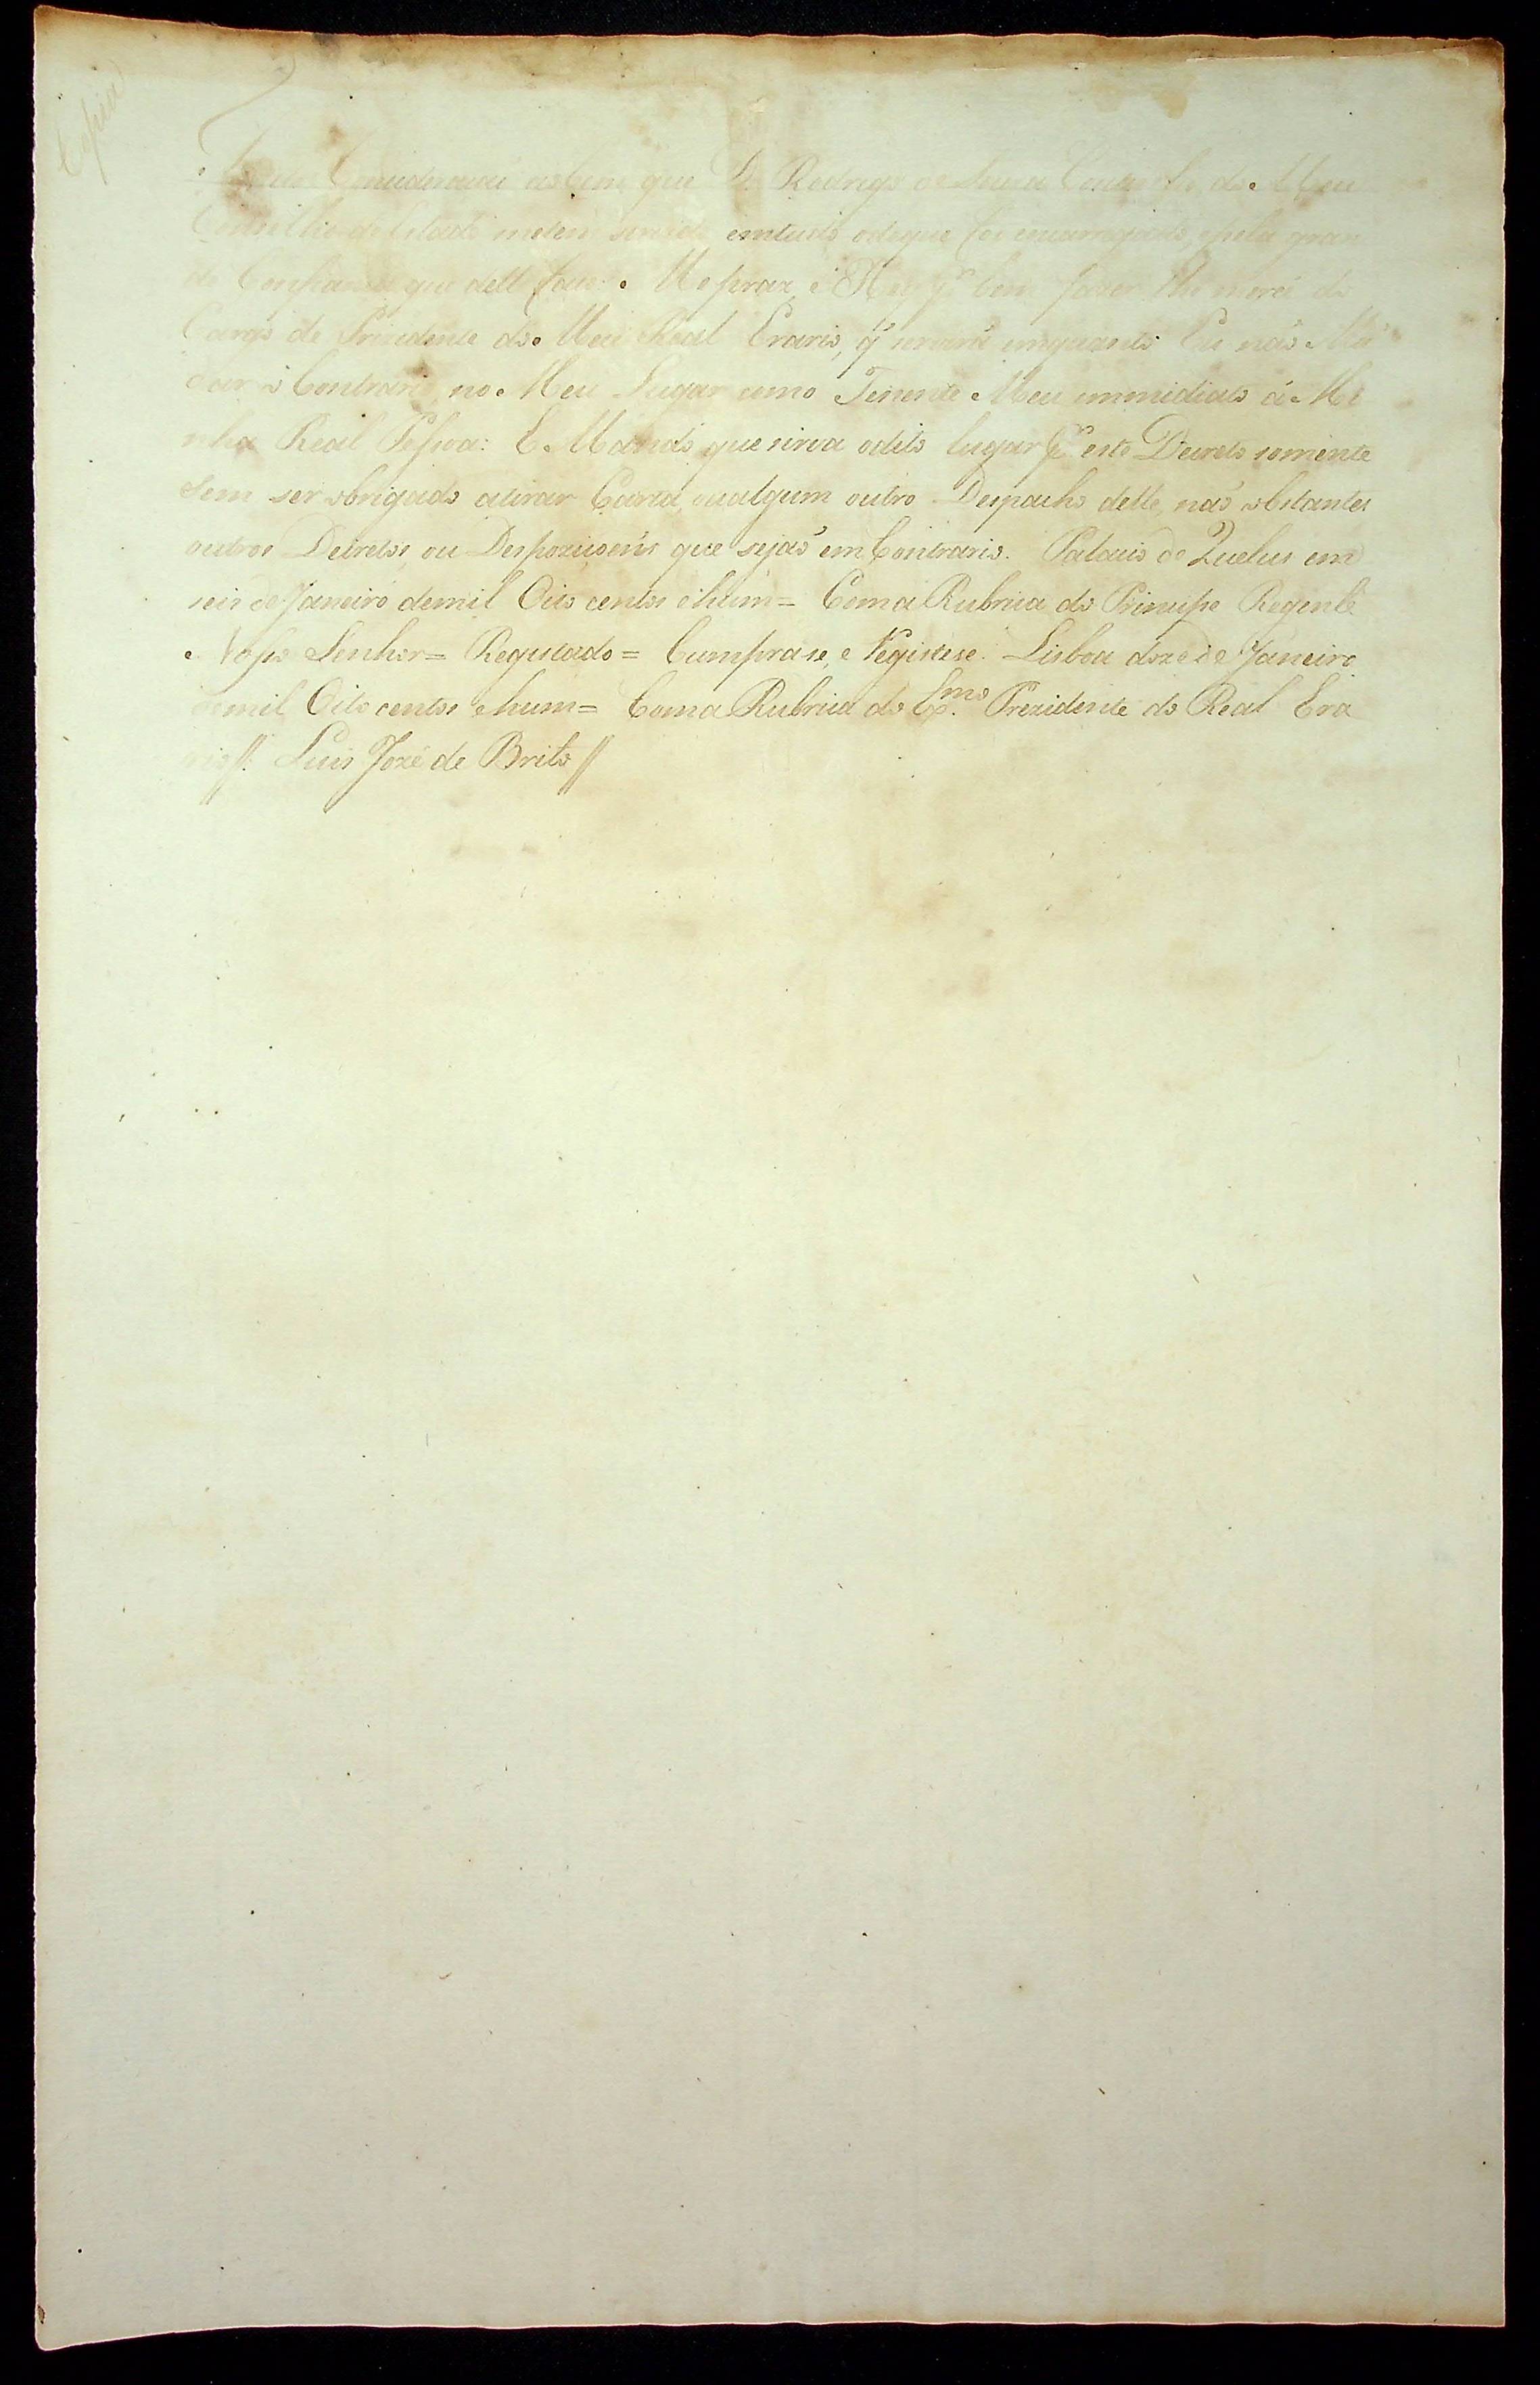 Copia
Tendo Consideraçaõ aobem, que D. Rodrigo de Souza Coutinho, do Meu
Conselho de Estado metem servido emtudo odeque foi encarregado, epela gran
de Confiança que delle faço: Me praz, e Hey pr. bem fazer lhe mercê do
Cargo de Prezidente do Meu Real Erario, q' servirá emquanto Eu naõ Man
dar o Contrario, no Meu Lugar como Tenente Meu immidiato á Mi
nha Real Pessoa: E Mando que sirva odito lugar pr. este Decreto somente
sem ser obrigado atirar Carta, oualgum outro Despacho delle, naõ obstantes
outros Decretos, ou Despoziçoens que sejaõ emContrario. Palacio de Quelus em
seis de Janeiro demil Oito centos ehum = Coma Rubrica do Principe Regente
Nosso Senhor = Regustado = Cumprase, e Registese. Lisboa doze de Janeiro
demil Oito centos ehum = Coma Rubrica do Exmo. Prezidente do Real Era
rio //: Luis Jozé de Brito //